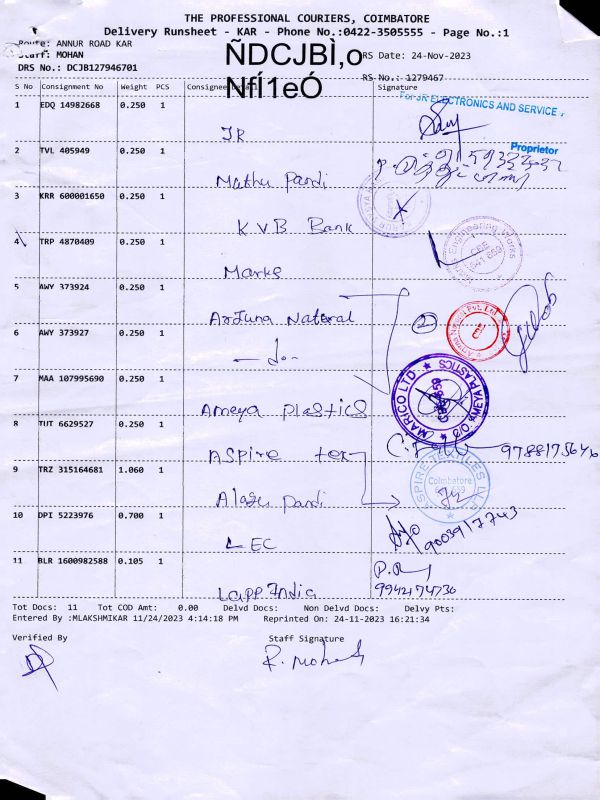 THE PROFESSIONAL COURIERS, COIMBATORE
Delivery Runsheet - KAR - Phone No.:0422-3505555 - Page No.:1
Route: ANNUR ROAD KAR
Staff: MOHAN
RS Date: 24-Nov-2023
DRS No.: DCJB127946701
ÑDCJBÌ,o
NfÍ1eÓ
RS No.: 1279467
S No Consignment No Weight PCS Consignee Detail Signature
For JR ELECTRONICS AND SERVICE,
1 EDQ 14982668 0.250 1
JR
Proprietor
2 TVL 405949 0.250 1
Mathu Pandi
3 KRR 600001650 0.250 1
KVB Bank
4 TRP 4870409 0.250 1
Engineering Works
Marks
5 AWY 373924 0.250 1
Arjuna Natural
2
6 AWY 373927 0.250 1
- do -
7 MAA 107995690 0.250 1
MARICO LTD. ★ C/O. AMEYA PLASTICS ★
Ameya Plastics
8 TUT 6629527 0.250 1
Aspire tex
9 TRZ 315164681 1.060 1
ASPIRE TEXTILES
Coimbatore
Alagu Pandi
10 DPI 5223976 0.700 1
9003917743
LEC
11 BLR 1600982588 0.105 1
P.R
9942174730
Lapp India
Tot Docs: 11 Tot COD Amt: 0.00 Delvd Docs: Non Delvd Docs: Delvy Pts:
Entered By :MLAKSHMIKAR 11/24/2023 4:14:18 PM Reprinted On: 24-11-2023 16:21:34
Verified By Staff Signature
R. Mohan